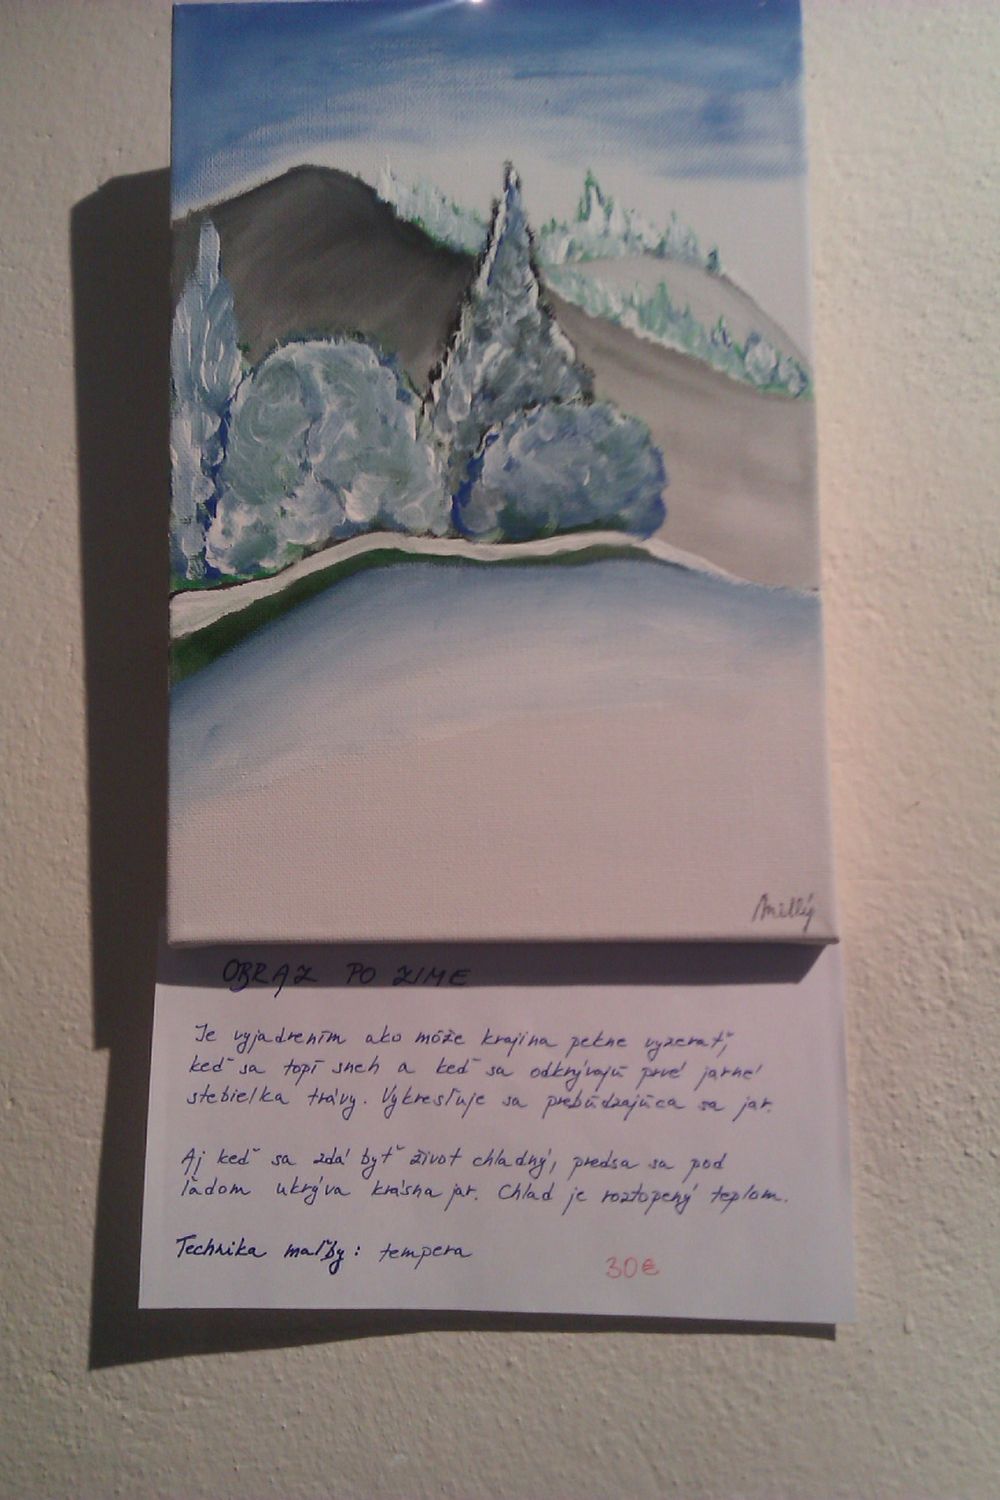 Amilly
OBRAZ PO ZIME
Je vyjadrením ako môže krajina pekne vyzerať,
keď sa topí sneh a keď sa odkrývajú prvé jarné
stebielka trávy. Vykresľuje sa prebúdzajúca sa jar.
Aj keď sa zdá byť život chladný, predsa sa pod
ľadom ukrýva krásna jar. Chlad je roztopený teplom.
Technika maľby: tempera
30€